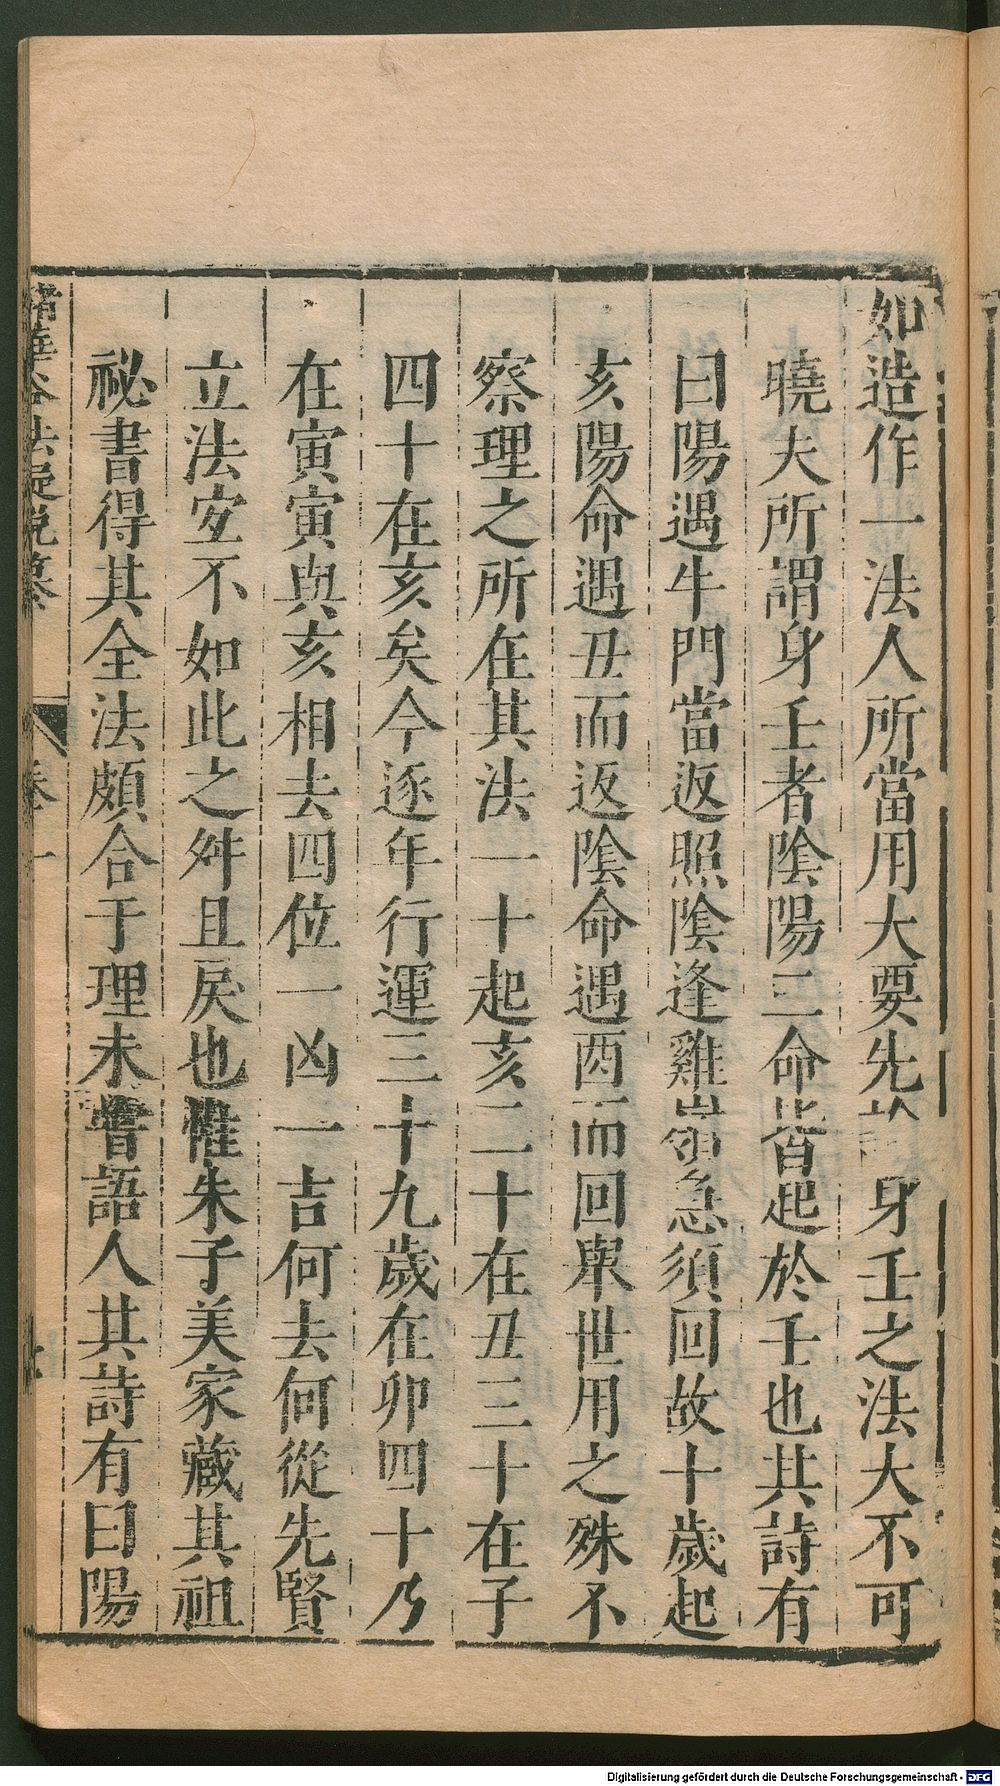 如造作一法人所當用大要先身壬之法大不可
曉夫所謂身壬者陰陽二命皆起於壬也其詩有
曰陽遇牛門當返照陰逢雞嶺急須回故十歲起
亥陽命遇丑而返陰命遇酉而回舉世用之殊不
察理之所在其法一十起亥二十在丑三十在子
四十在亥矣今逐年行運三十九歲在卯四十乃
在寅寅與亥相去四位一凶一吉何去何從先賢
立法安不如此之舛且戾也惟朱子美家藏其祖
祕書得其全法頗合于理未嘗語人其詩有曰陽
法疑說纂
卷一
Digitalisierung gefördert durch die Deutsche Forschungsgemeinschaft - DFG